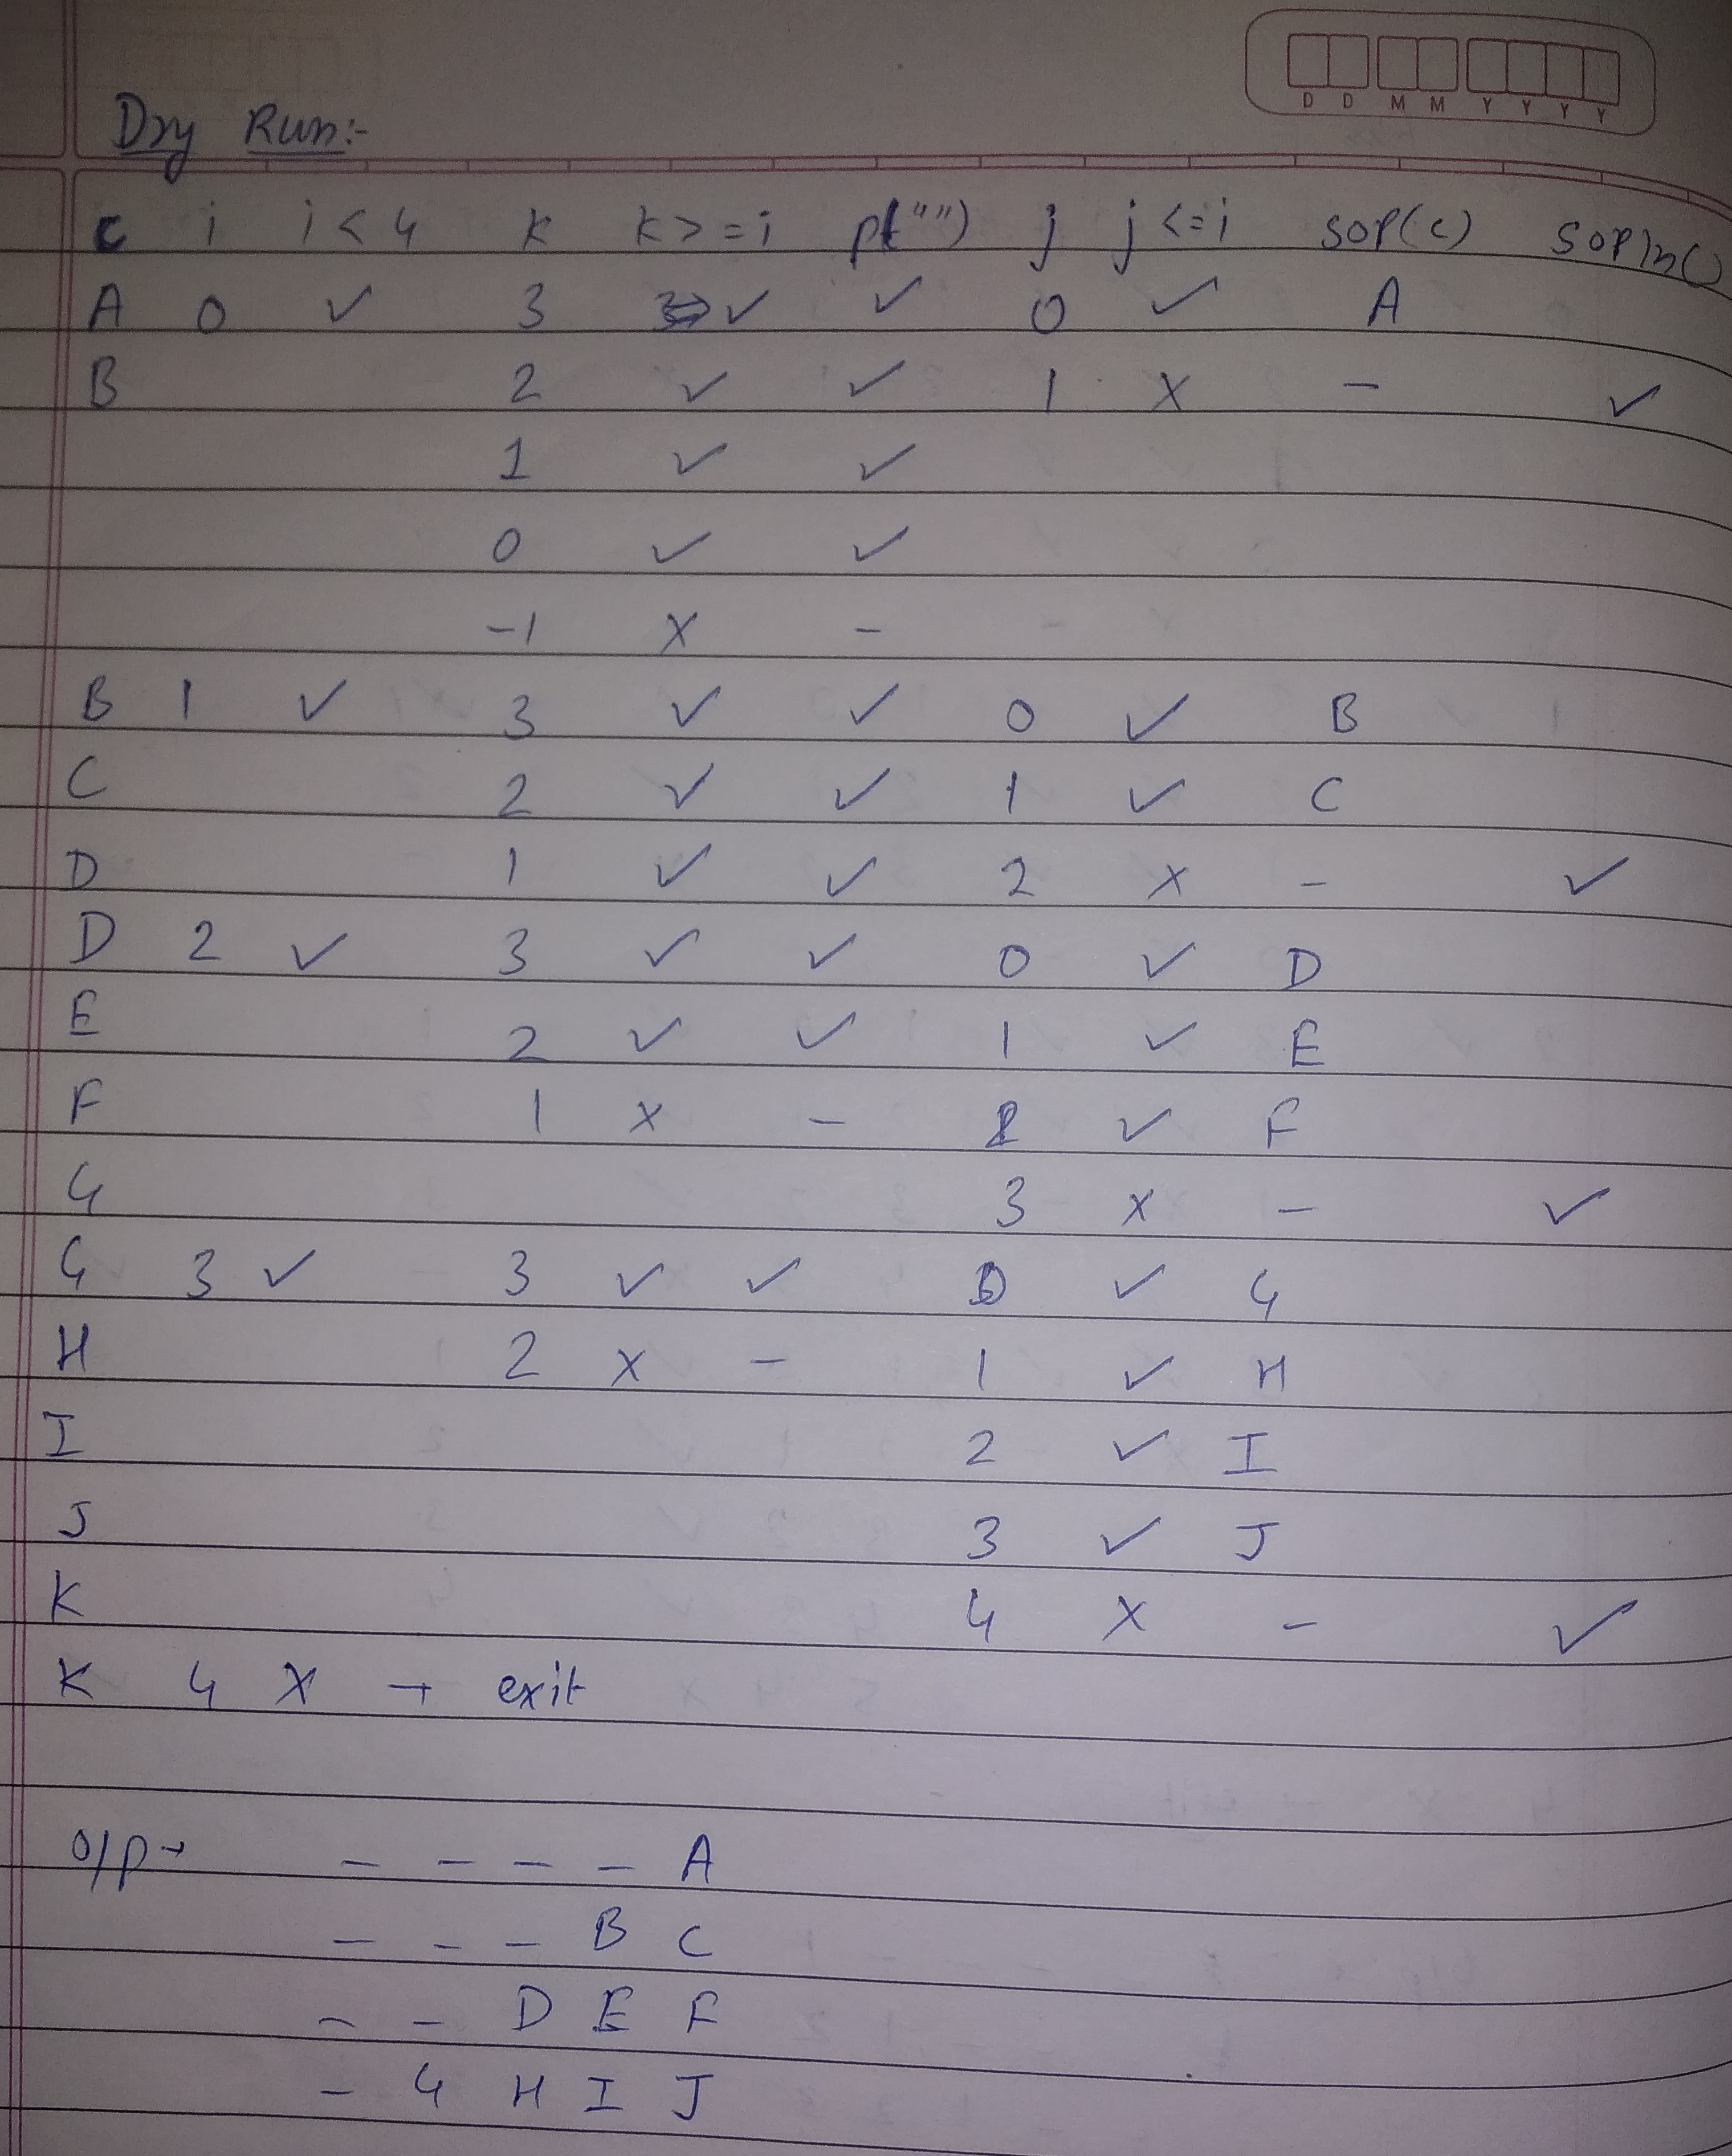 D D M M Y Y Y Y
Dry Run:-
c i i < 4 k k > = i pt("") j j < = i sop(c) sopln()
A 0 ✓ 3 ✓ ✓ 0 ✓ A
B 2 ✓ ✓ 1 X - ✓
1 ✓ ✓
0 ✓ ✓
-1 X -
B 1 ✓ 3 ✓ ✓ 0 ✓ B
C 2 ✓ ✓ 1 ✓ C
D 1 ✓ ✓ 2 X - ✓
D 2 ✓ 3 ✓ ✓ 0 ✓ D
E 2 ✓ ✓ 1 ✓ E
F 1 X - 2 ✓ F
G 3 X - ✓
G 3 ✓ 3 ✓ ✓ 0 ✓ G
H 2 X - 1 ✓ H
I 2 ✓ I
J 3 ✓ J
K 4 X - ✓
K 4 X → exit
O/P → - - - - A
- - - B C
- - D E F
- G H I J